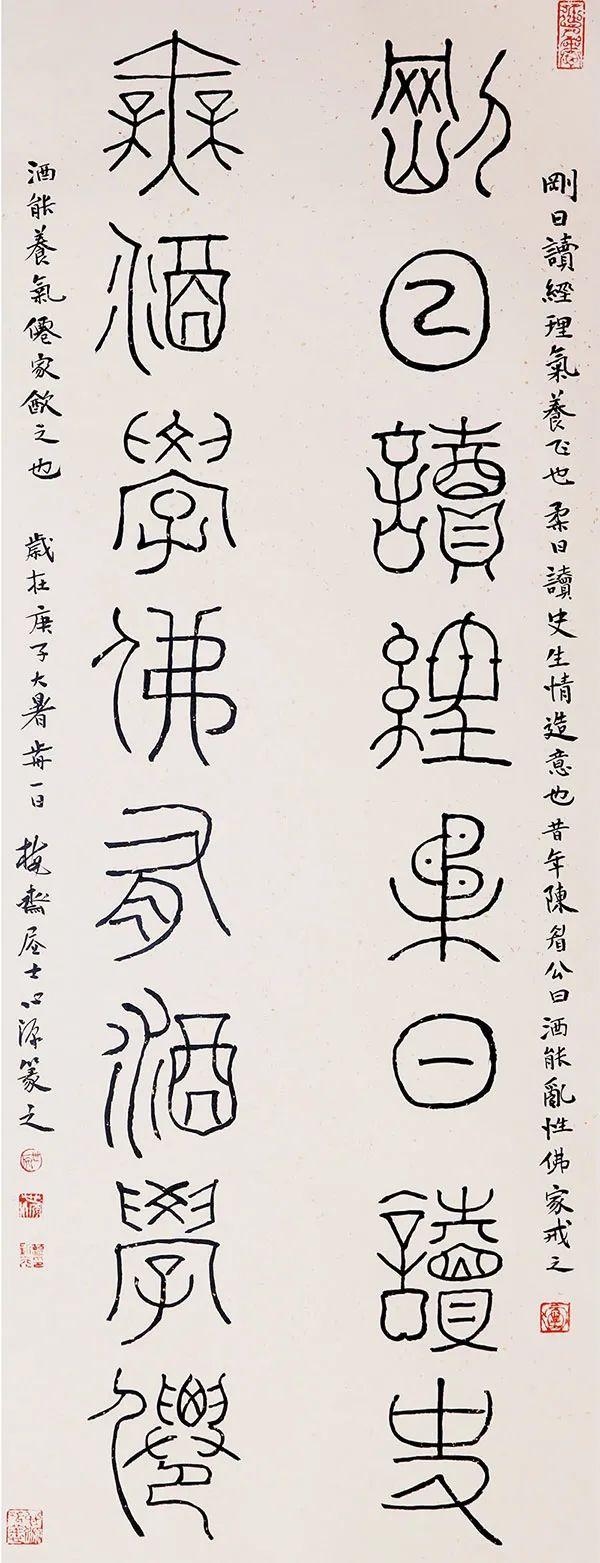 剛日讀經理氣養正也柔日讀史生情造意也昔年陳眉公曰酒能亂性佛家戒之
剛日讀經柔日讀史
無酒學佛有酒學僊
酒能養氣僊家飲之也 歲在庚子大暑歬一日 梅齋居士心源篆之